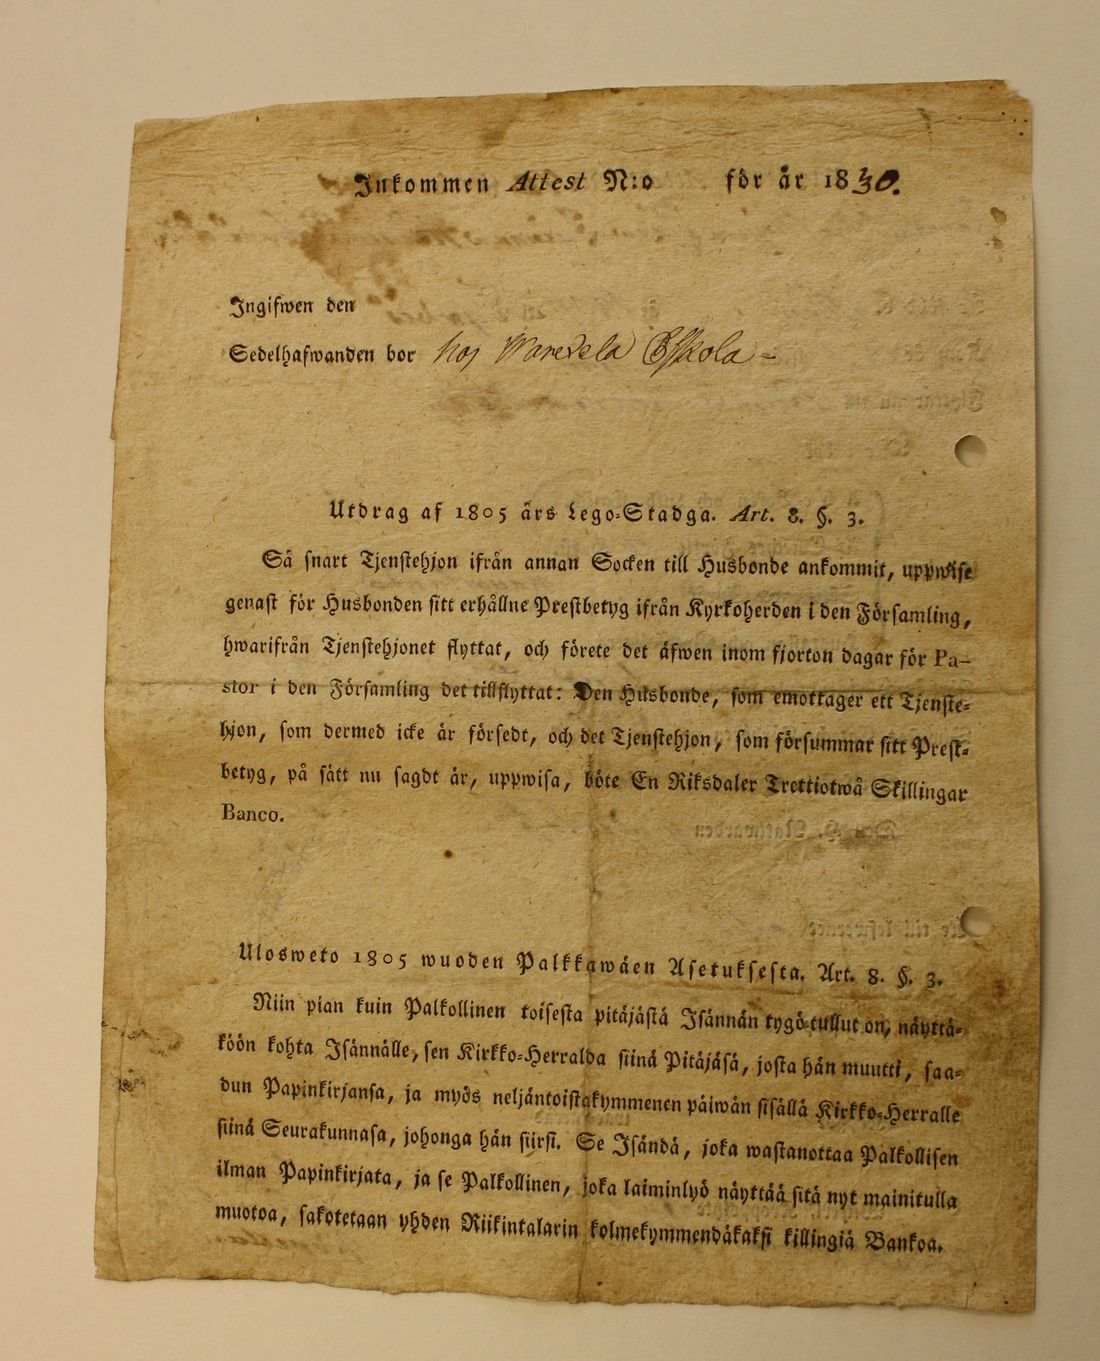 Inkommen Attest N:o för år 1830.
Ingifwen den
Sedelhafwanden bor hos Waredela Eskola
Utdrag af 1805 års Lego-Stadga. Art. 8. §. 3.
Så snart Tjenstehjon ifrån annan Socken till Husbonde ankommit, uppwise
genast för Husbonden sitt erhållne Prestbetyg ifrån Kyrkoherden i den Församling,
hwarifrån Tjenstehjonet flyttat, och förete det äfwen inom fjorton dagar för Pa-
stor i den Församling det tillflyttat: Den Husbonde, som emottager ett Tjenste-
hjon, som dermed icke är försedt, och det Tjenstehjon, som försummar sitt Prest-
betyg, på sätt nu sagdt är, uppwisa, böte En Riksdaler Trettiotwå Skillingar
Banco.
Ulosweto 1805 wuoden Palkkawäen Asetuksesta. Art. 8. §. 3.
Niin pian kuin Palkollinen toisesta pitäjästä Isännän tygö-tullut on, näyttä-
köön kohta Isännälle, sen Kirkko-Herralda siinä Pitäjäsä, josta hän muutti, saa-
dun Papinkirjansa, ja myös neljäntoistakymmenen päiwän sisällä Kirkko-Herralle
siinä Seurakunnasa, johonga hän siirsi. Se Isändä, joka wastanottaa Palkollisen
ilman Papinkirjata, ja se Palkollinen, joka laiminlyö näyttää sitä nyt mainitulla
muotoa, sakotetaan yhden Riikintalarin kolmekymmendäkaksi killingiä Bankoa.